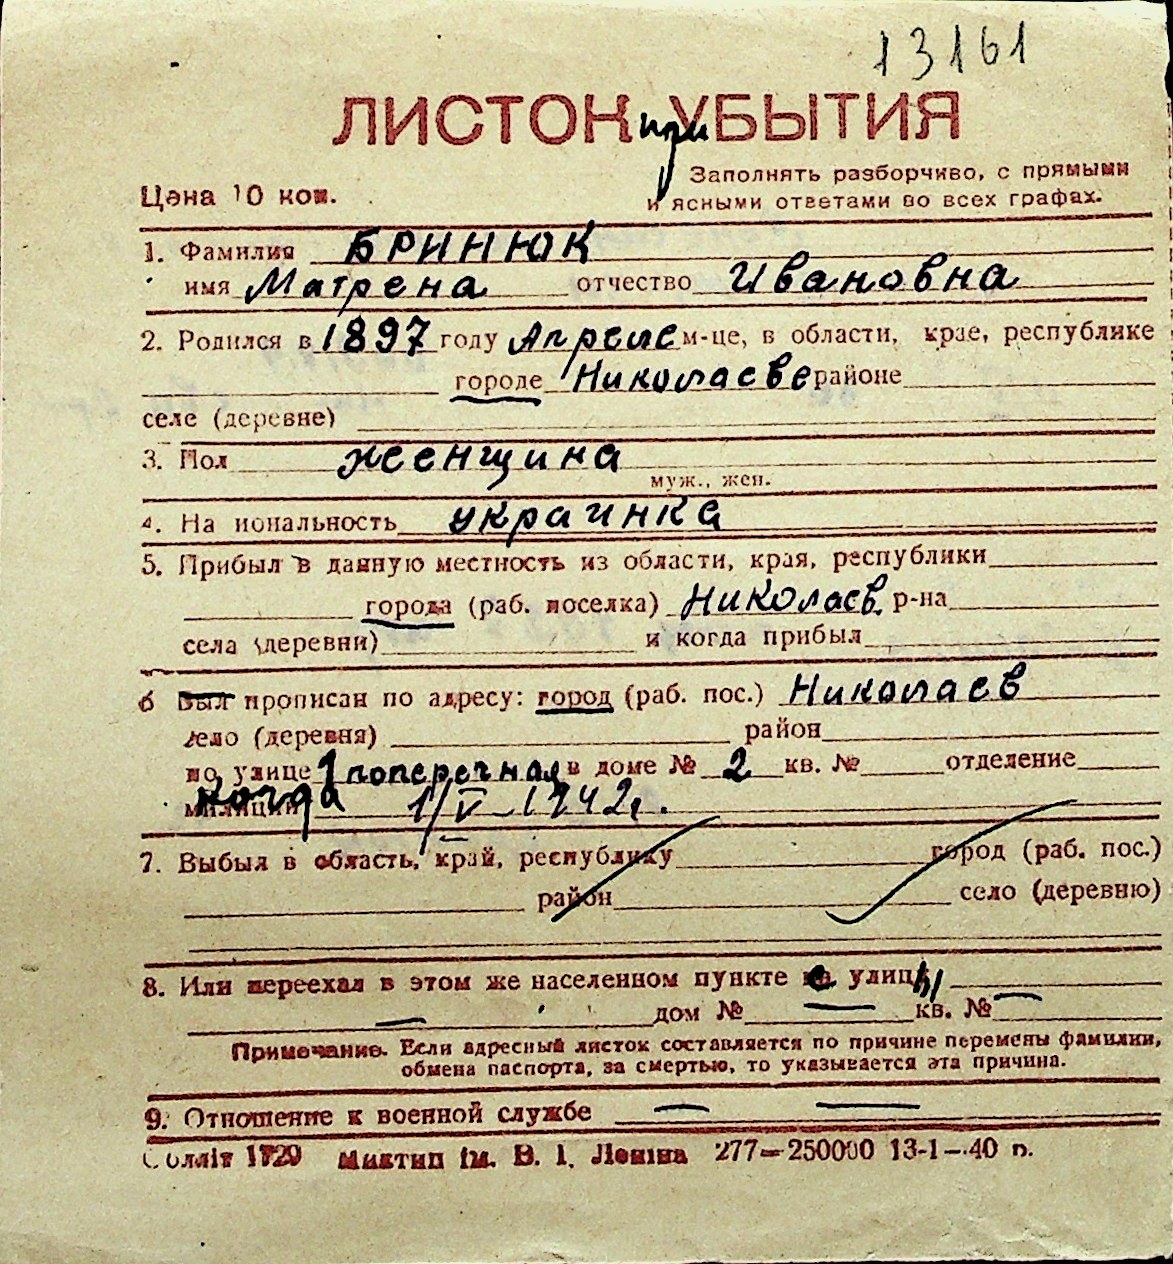 13161
ЛИСТОК при УБЫТИЯ
Заполнять разборчиво, с прямыми
Цена 10 коп. и ясными ответами во всех графах.
1. Фамилия БРИНЮК
имя Матрена отчество Ивановна
2. Родился в 1897 году Апреле м-це, в области, крае, республике
городе Николаеве районе
селе (деревне)
3. Пол женщина
муж., жен.
4. На иональность украинка
5. Прибыл в данную местность из области, края, республики
города (раб. поселка) Николаев р-на
села (деревни) и когда прибыл
6 Был прописан по адресу: город (раб. пос.) Николаев
село (деревня) район
по улице 1 поперечная в доме № 2 кв. № отделение
милиции когда 1/V-1942г.
7. Выбыл в область, край, республику город (раб. пос.)
район село (деревню)
8. Или переехал в этом же населенном пункте с улицы
дом № — кв. № —
Примечание. Если адресный листок составляется по причине перемены фамилии,
обмена паспорта, за смертью, то указывается эта причина.
9. Отношение к военной службе — —
Облліт 1720 Миктип ім. В. І. Леніна 277—250000 13-1—40 п.